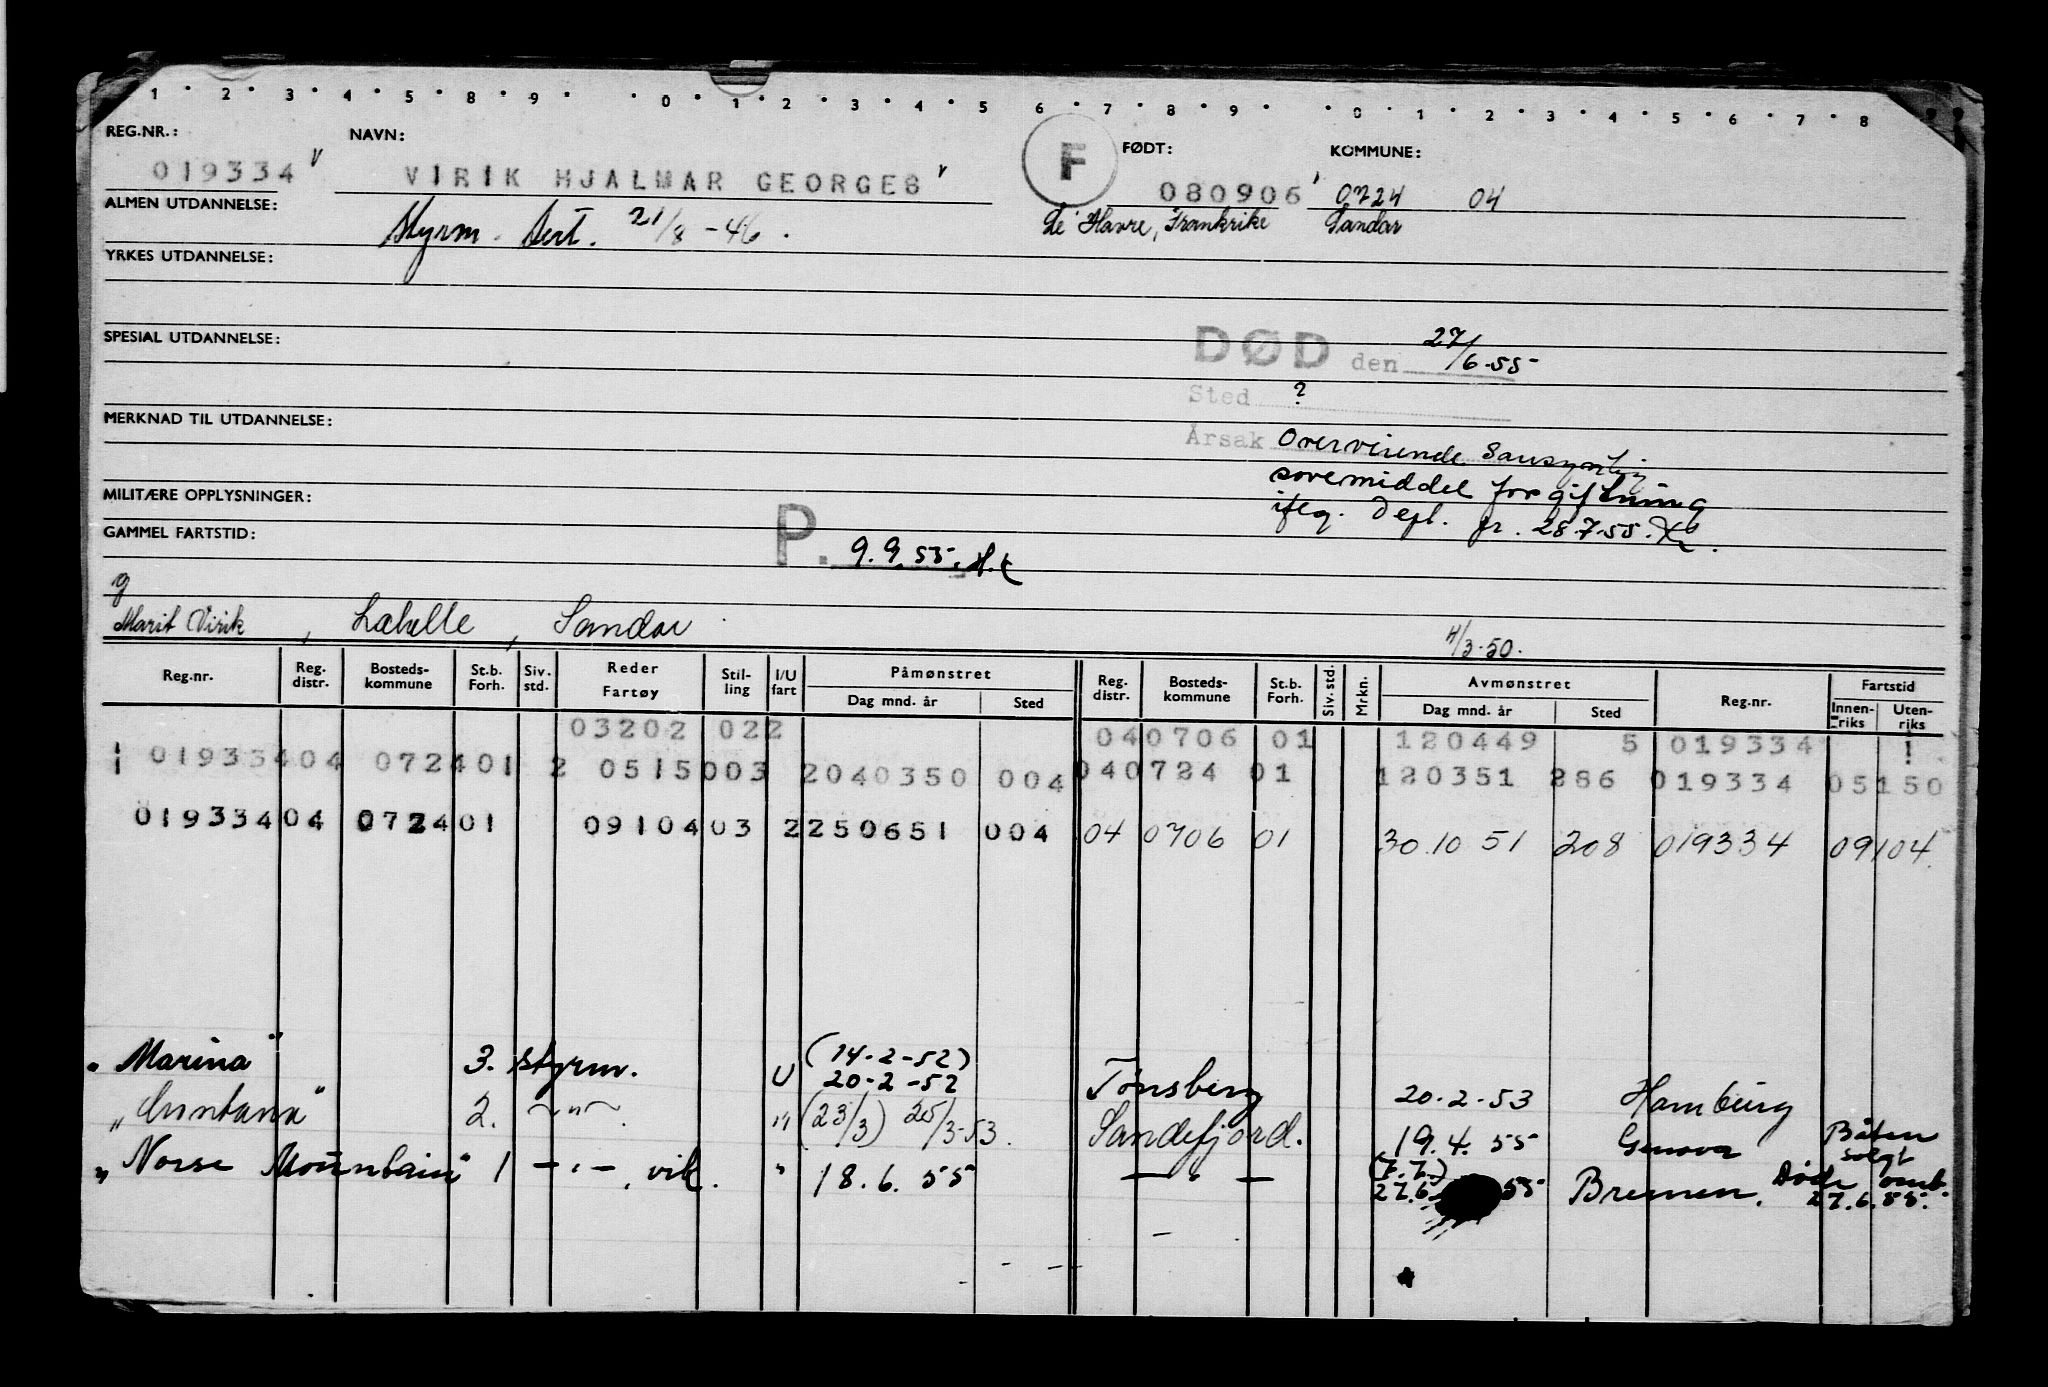 1 • 2 • 3 • 4 • 5 • 8 • 9 • • 0 • 1 • 2 • 3 • 4 • 5 6 • 7 • 8 • 9 • • 0 • 1 • 2 • 3 • 4 • 5 • 6 • 7 • 8
REG.NR.: NAVN: F FØDT: KOMMUNE:
019334 VIRIK HJALMAR GEORGES 080906 0724 04
ALMEN UTDANNELSE: Styrm. Sert. 21/8 - 46. Le Havre, Frankrike Sandar
YRKES UTDANNELSE:
SPESIAL UTDANNELSE: DØD den 27/6-55
Sted ?
MERKNAD TIL UTDANNELSE: Årsak Overveiende Sansynlig
sovemiddel forgiftning
MILITÆRE OPPLYSNINGER: iflg. Dept. br. 28.7.55.
GAMMEL FARTSTID: P. 9.9.55.
g
Marit Virik, Lahelle, Sandar 4/3-50.
Reg.nr. Reg. distr. Bosteds-kommune St.b. Forh. Siv. std. Reder Fartøy Stil-ling I/U fart Påmønstret Dag mnd. år Sted Reg. distr. Bosteds-kommune St.b. Forh. Siv. std. Mrkn. Avmønstret Dag mnd. år Sted Reg.nr. Fartstid Innen-riks Uten-riks
03202 022 04 0706 01 120449 5 019334
019334 04 0724 01 2 0515 003 2 040350 004 04 0724 01 120351 286 019334 05150
019334 04 0724 01 09104 03 2 250651 004 04 0706 01 30 10 51 208 019334 09104.
"Marina" 3. styrm. U (14-2-52) 20-2-52 Tønsberg 20-2-53 Hamburg
2. -"- "" (23/3) 25/3-53. Sandefjord. 19.4.55 Genova Båten solgt
"Norse Mountain" 1 -"-, vik. " 18.6.55 — " — (7.7.) 27.6. 55 Bremen. Døde omb. 27.6.55.